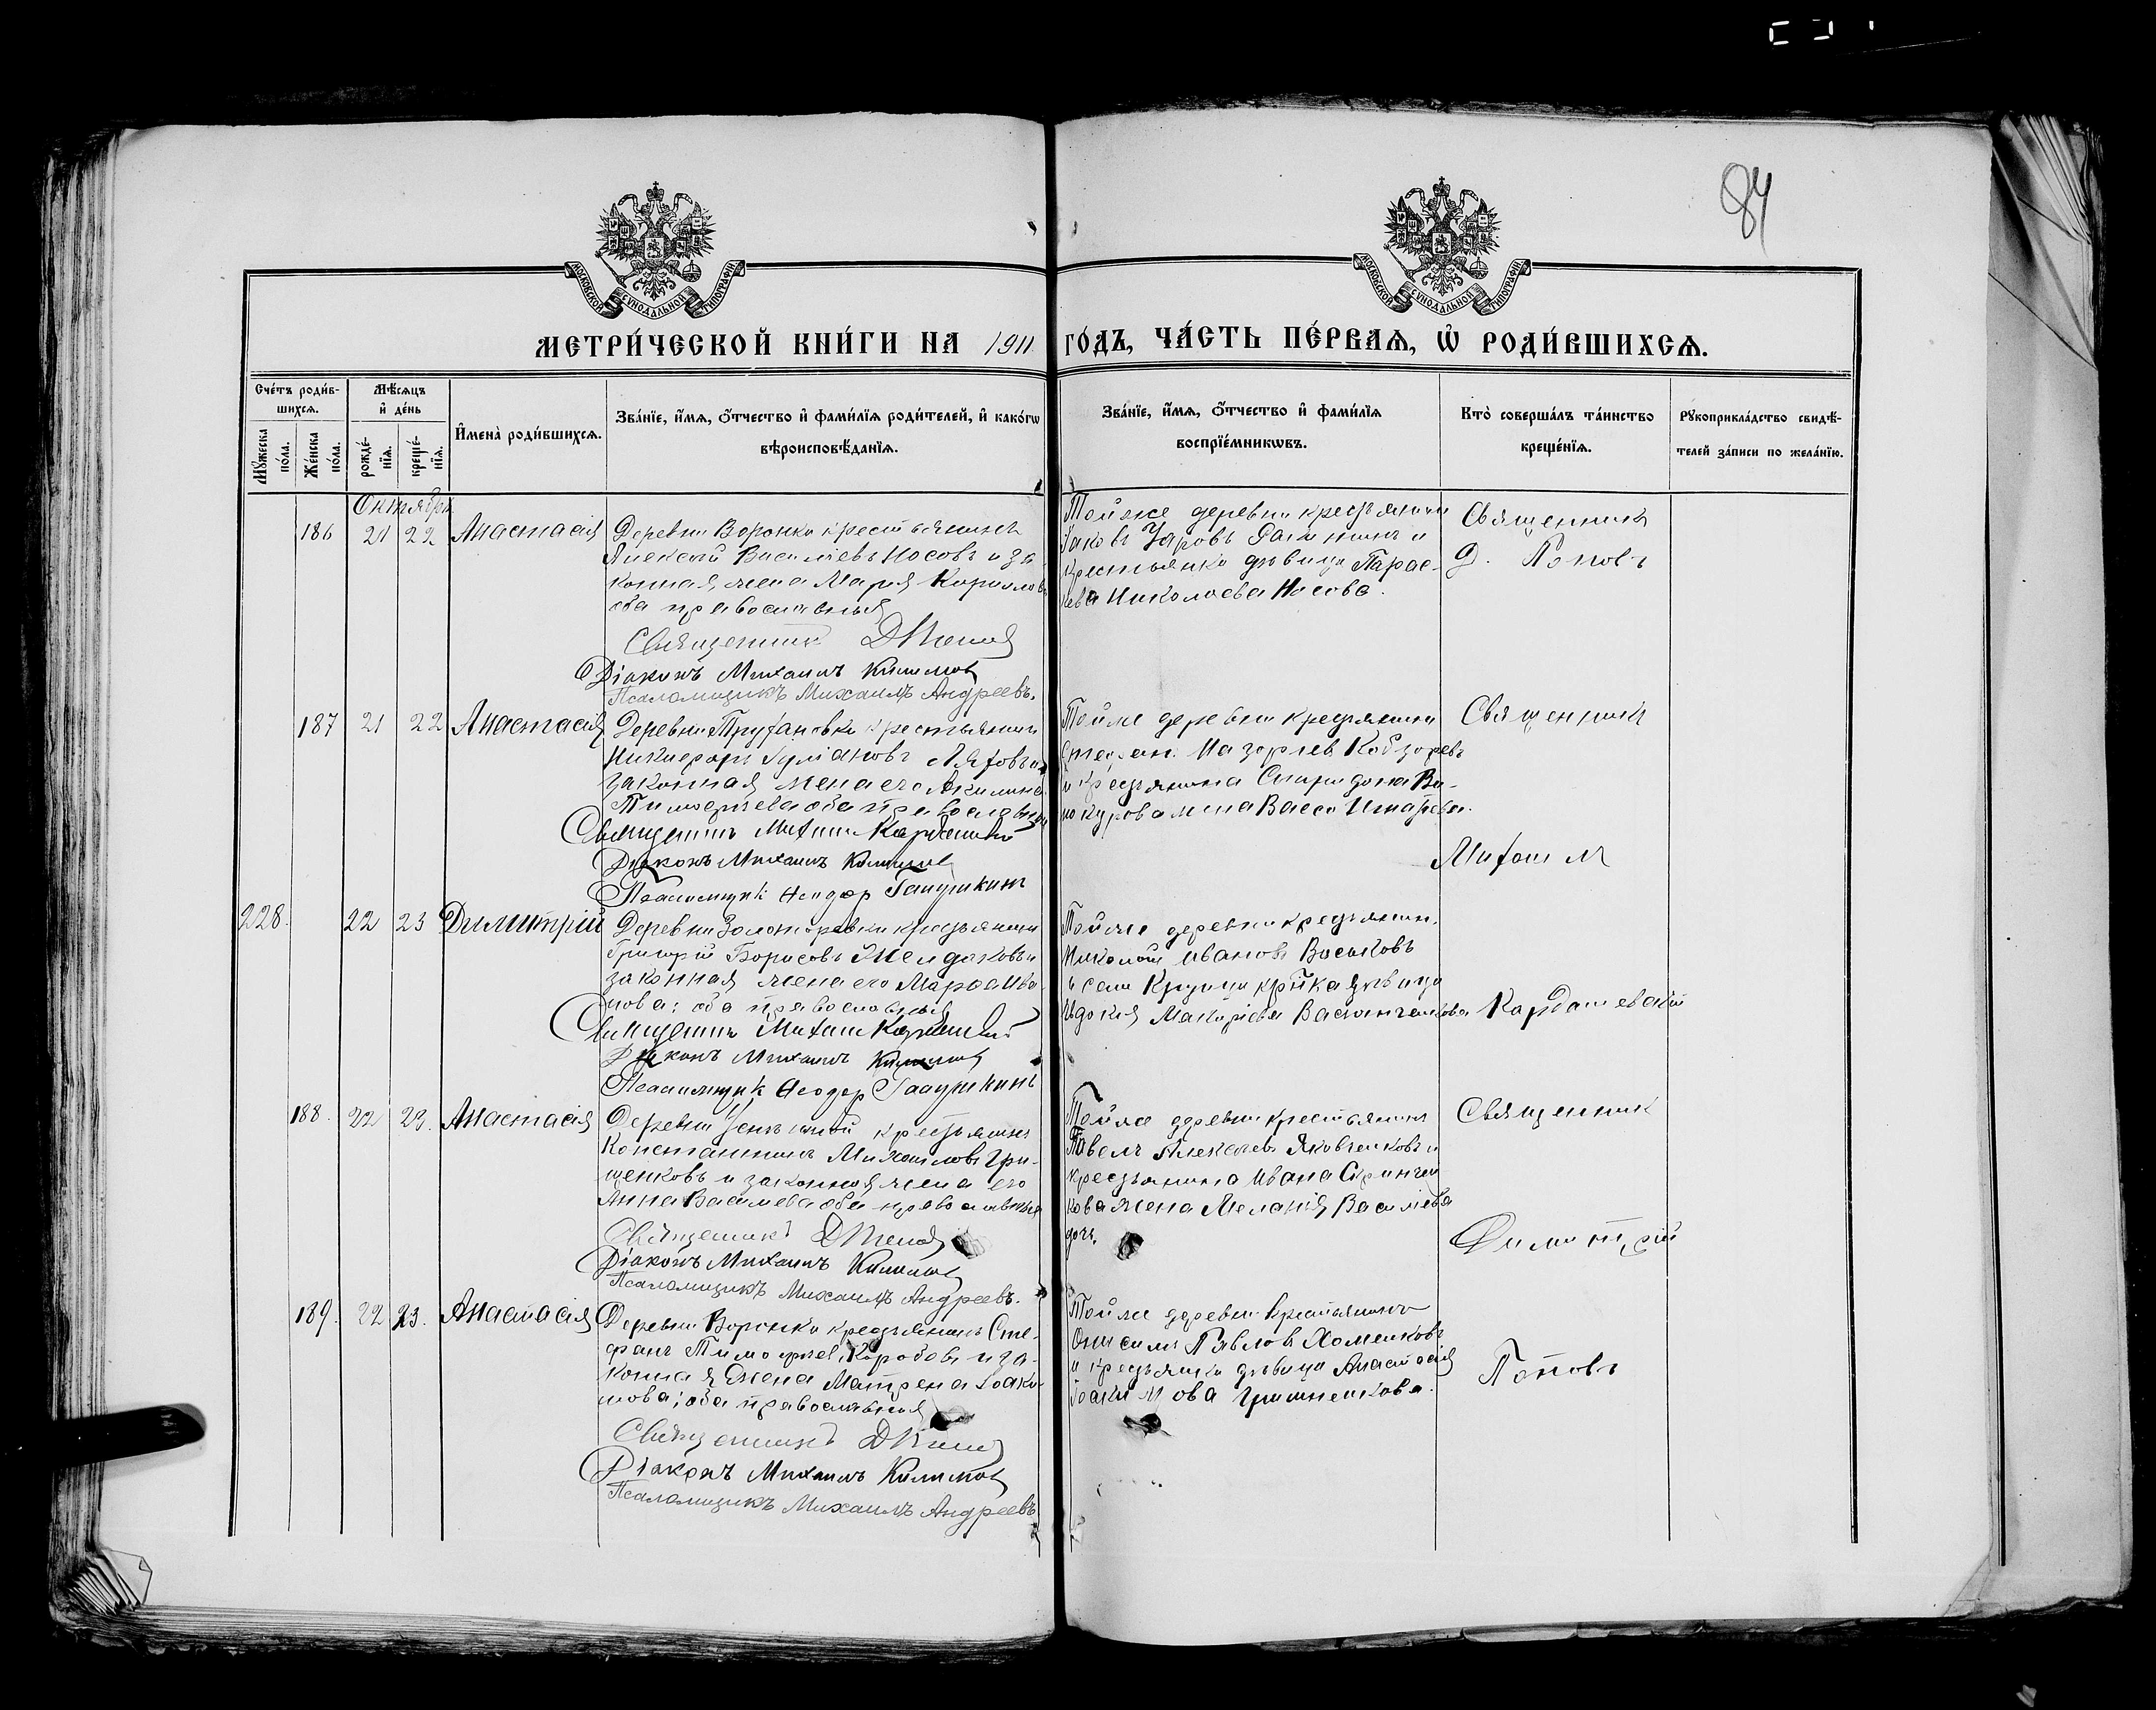 84
МОСКОВСКОЙ СУНОДАЛЬНОЙ ТИПОГРАФІИ
МОСКОВСКОЙ СУНОДАЛЬНОЙ ТИПОГРАФІИ
МЕТРИ́ЧЕСКОЙ КНИ́ГИ НА 1911 ГО́ДЪ, ЧА́СТЬ ПЕ́РВАѦ, Ѡ҆ РОДИ́ВШИХСѦ.
Сче́тъ роди́в-
шихсѧ.
Мꙋ́жеска по́ла.
Же́нска по́ла.
Мѣ́сѧцъ
и҆ де́нь
рожде́-
нїѧ.
креще́-
нїѧ.
И҆мена̀ роди́вшихсѧ.
Зва́нїе, и҆́мѧ, ѻ҆́тчество и҆ фами́лїѧ роди́телей, и҆ како́гѡ
вѣроисповѣ́данїѧ.
Зва́нїе, и҆́мѧ, ѻ҆́тчество и҆ фами́лїѧ
воспрїе́мникѡвъ.
Кто̀ соверша́лъ та́инство
креще́нїѧ.
Рꙋкоприкла́дство свидѣ́-
телей за́писи по жела́нїю.
Октября
186 21 22 Анастасія
Деревни Воронки крестьянинъ
Алексѣй Васильевъ Носовъ и за
конная жена Марія Кириллов
оба православныя
Священникъ Д Поповъ
Діаконъ Михаилъ
Псаломщикъ Михаилъ Андреевъ.
Тойже деревни крестьянинъ
Іаковъ и
крестьянка дѣвица Парас-
кева Николаева Носова.
Священникъ
Д. Поповъ
187 21 22 Анастасія
Деревни Труфановки крестьянинъ
Никифоръ и
законная жена его Акилина
Тимофѣева оба православныя
Священникъ Митрофанъ Кардашевскій
Діаконъ Михаилъ
Псаломщикъ Ѳеодоръ Галушкинъ
Тойже деревни крестьянинъ
Стефанъ Назарьевъ Кобзоревъ
и крестьянина Спиридона Ви-
нокурова жена Васса Игнатьева.
Священникъ
228. 22 23 Димитрій
Деревни Золоторевки крестьянинъ
Григорій Борисовъ и
законная жена его Марѳа Ива
нова; оба православныя
Священникъ Митрофанъ Кардашевскій
Діаконъ Михаилъ
Псаломщикъ Ѳеодоръ Галушкинъ
Тойже деревни крестьянинъ
Николай Ивановъ Васьковъ
и села дѣвица
Евдокія Макарьева
Кардашевскій
188. 22 23. Анастасія
Деревни крестьянинъ
Константинъ Михайловъ Гри-
щенковъ и законная жена его
Анна Васильева оба православныя
Священникъ Д Поповъ
Діаконъ Михаилъ
Псаломщикъ Михаилъ Андреевъ.
Тойже деревни крестьянинъ
Павелъ Алексѣевъ Яковенковъ и
крестьянина Ивана
кова жена Меланія Васильева
дочь.
Священникъ
Димитрій
189. 22 23. Анастасія
Деревни Воронки крестьянинъ Сте-
фанъ Тимофѣевъ Коробовъ и за-
конная жена Матрена Іоаки-
мова; оба православныя
Священникъ Д Поповъ
Діаконъ Михаилъ
Псаломщикъ Михаилъ Андреевъ
Тойже деревни крестьянинъ
Онисимъ Павловъ Хоменковъ
и крестьянка дѣвица Анастасія
Іоакимова
Поповъ